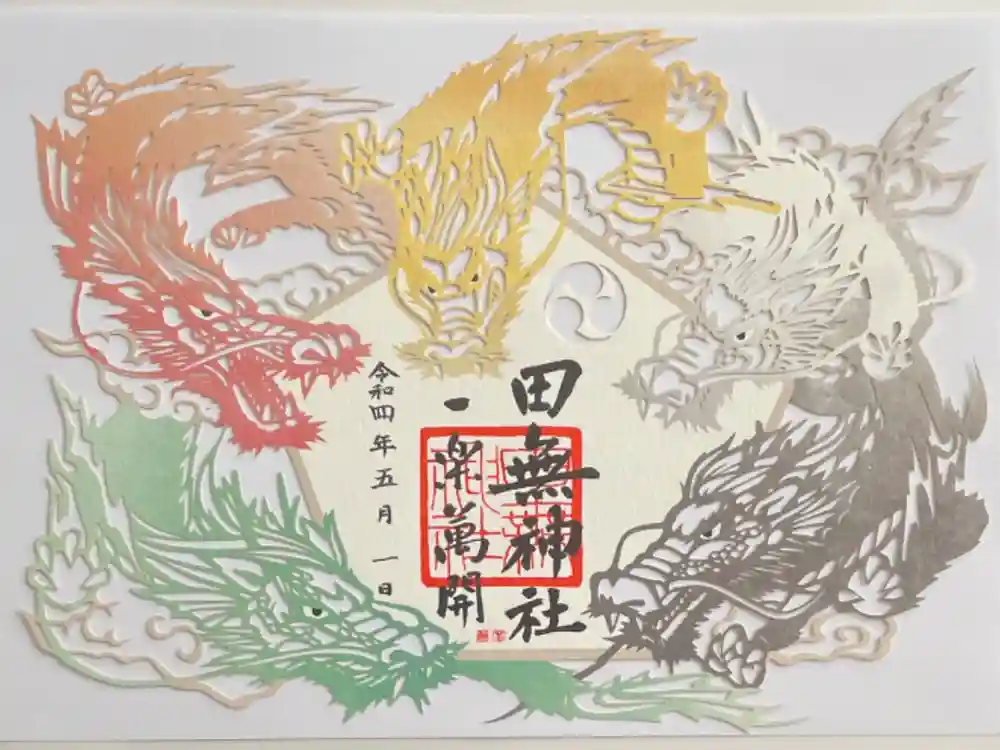 田無神社
一樂萬開
令和四年五月一日